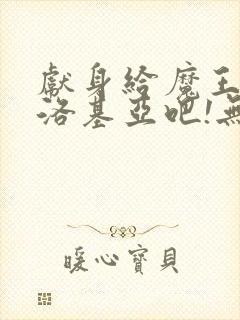 獻身給魔王
洛基亞吧!無
暖心寶貝